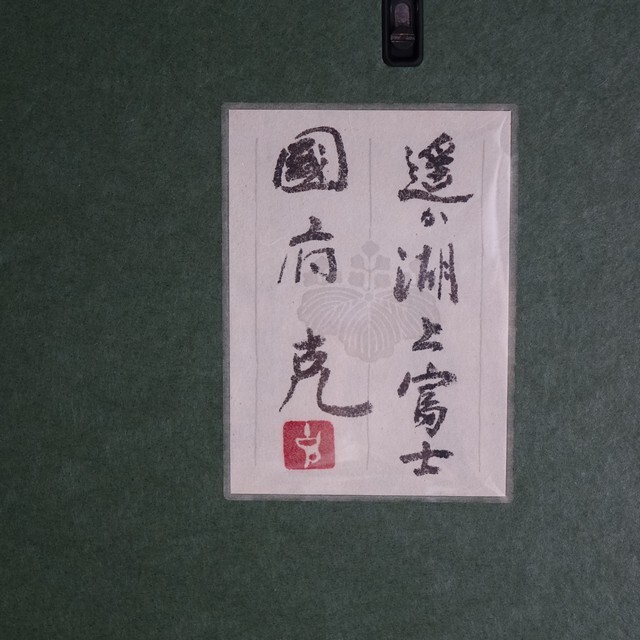 遥か湖上富士
國府克